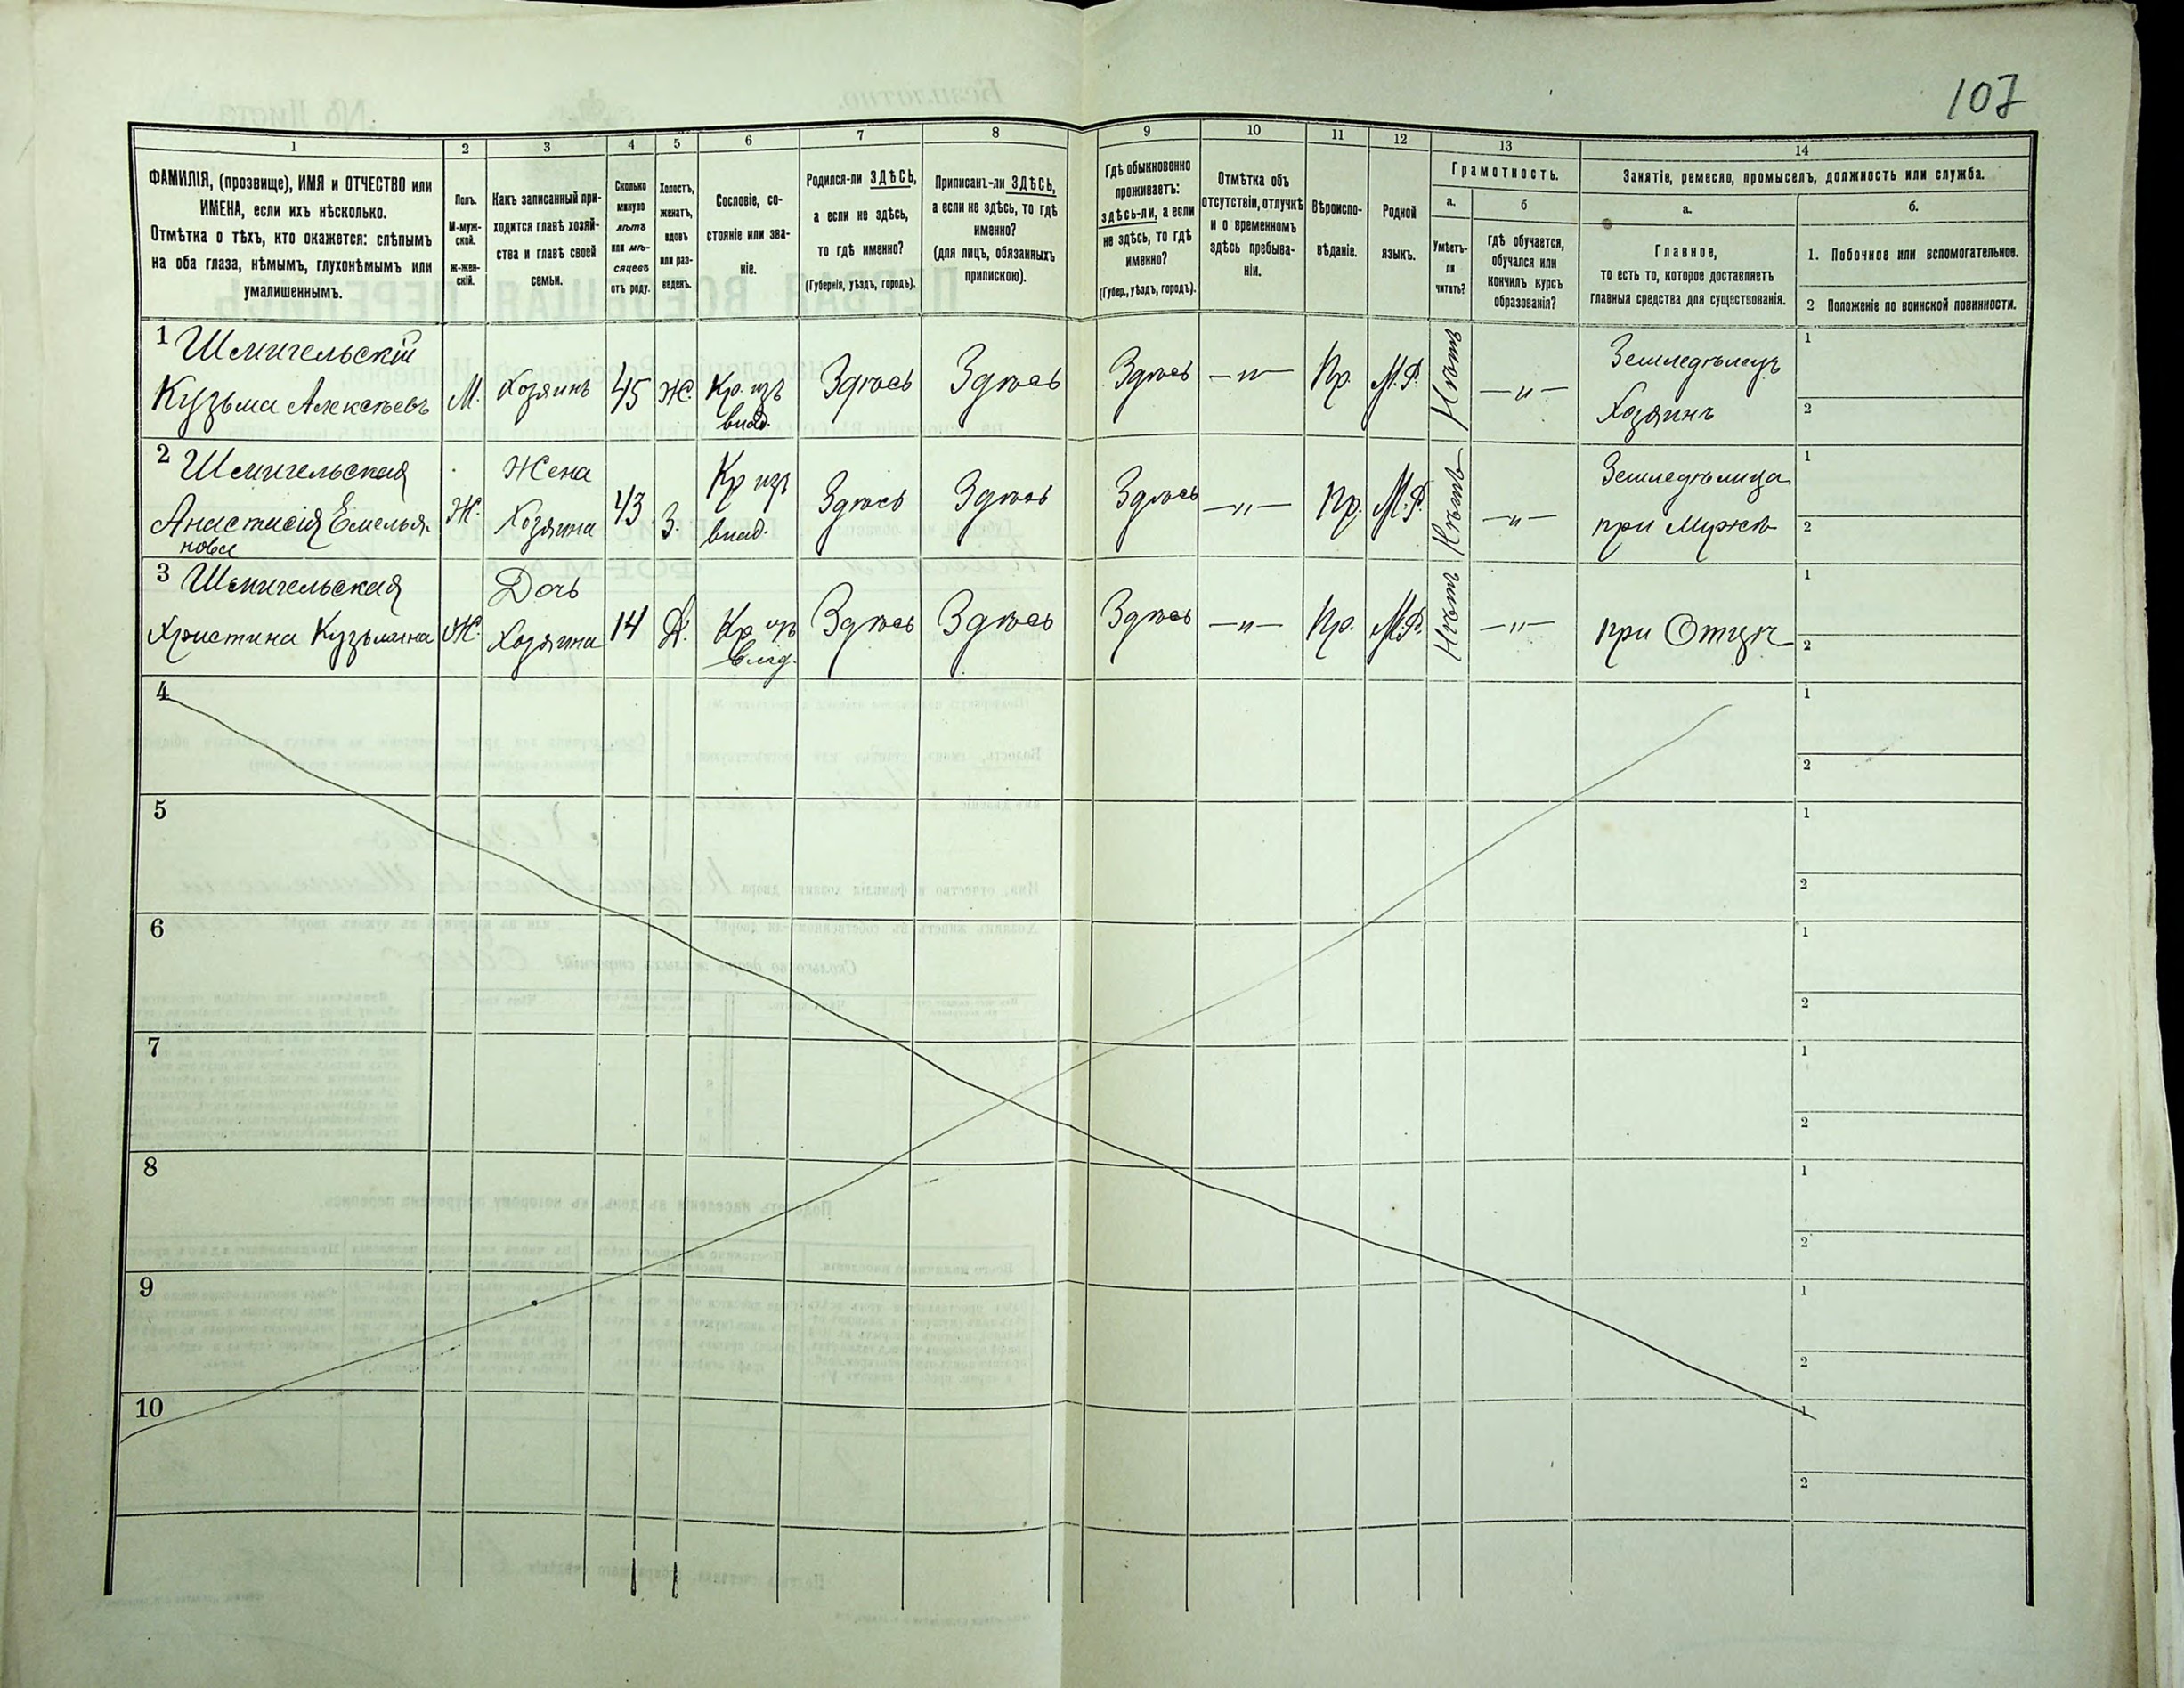 107
1 2 3 4 5 6 7 8 9 10 11 12 13 14
ФАМИЛІЯ, (прозвище), ИМЯ и ОТЧЕСТВО или
ИМЕНА, если ихъ нѣсколько.
Отмѣтка о тѣхъ, кто окажется: слѣпымъ
на оба глаза, нѣмымъ, глухонѣмымъ или
умалишеннымъ.
Полъ.
М-муж-
ской.
ж-жен-
скій.
Какъ записанный при-
ходится главѣ хозяй-
ства и главѣ своей
семьи.
Сколько
минуло
лѣтъ
или мѣ-
сяцевъ
отъ роду.
Холостъ,
женатъ,
вдовъ
или раз-
веденъ.
Сословіе, со-
стояніе или зва-
ніе.
Родился-ли ЗДѢСЬ,
а если не здѣсь,
то гдѣ именно?
(Губернія, уѣздъ, городъ).
Приписанъ-ли ЗДѢСЬ,
а если не здѣсь, то гдѣ
именно?
(для лицъ, обязанныхъ
припискою).
Гдѣ обыкновенно
проживаетъ:
здѣсь-ли, а если
не здѣсь, то гдѣ
именно?
(Губер., уѣздъ, городъ).
Отмѣтка объ
отсутствіи, отлучкѣ
и о временномъ
здѣсь пребыва-
ніи.
Вѣроиспо-
вѣданіе.
Родной
языкъ.
Грамотность.
а.
Умѣетъ-
ли
читать?
б
гдѣ обучается,
обучался или
кончилъ курсъ
образованія?
Занятіе, ремесло, промыселъ, должность или служба.
а.
Главное,
то есть то, которое доставляетъ
главныя средства для существованія.
б.
1. Побочное или вспомогательное.
2 Положеніе по воинской повинности.
1 Шмигельскій
Кузьма Алексѣевъ
М.
Хозяинъ
45
Ж.
Кр. изъ
влад.
Здѣсь
Здѣсь
Здѣсь
—"—
Пр.
М.Р.
Нѣтъ
—"—
Земледѣлецъ
Хозяинъ
1
2
2 Шмигельская
Анастасія Емелья-
нова
Ж.
Жена
Хозяина
43
З.
Кр изъ
влад.
Здѣсь
Здѣсь
Здѣсь
—"—
Пр.
М.Р.
Нѣтъ
—"—
Земледѣлица
при Мужѣ
1
2
3 Шмигельская
Христина Кузьмина
Ж.
Дочь
Хозяина
14
Д.
Кр изъ
влад.
Здѣсь
Здѣсь
Здѣсь
—"—
Пр.
М.Р.
Нѣтъ
—"—
при Отцѣ
1
2
4
1
2
5
1
2
6
1
2
7
1
2
8
1
2
9
1
2
10
1
2